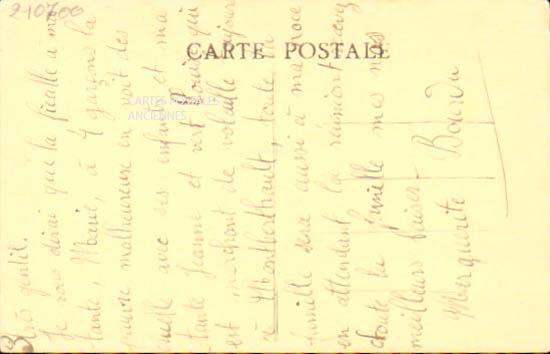 2-10700
CARTE POSTALE
CARTES POSTALES
ANCIENNES
3
très gentil.
Je vous dirai que la ficelle à ma
tante, Marie, à 4 garçons la
pauvre malheureuse en voit des
avec ses enfants et ma
tante Jeanne et voit Louis qui
est marchant de volaille toujour
à Montberthault, toute la
famille sera aussi à ma noce
en attendant la réunion recevez
toute la famille mes nos
meilleurs baiser
Marguerite Bourdu